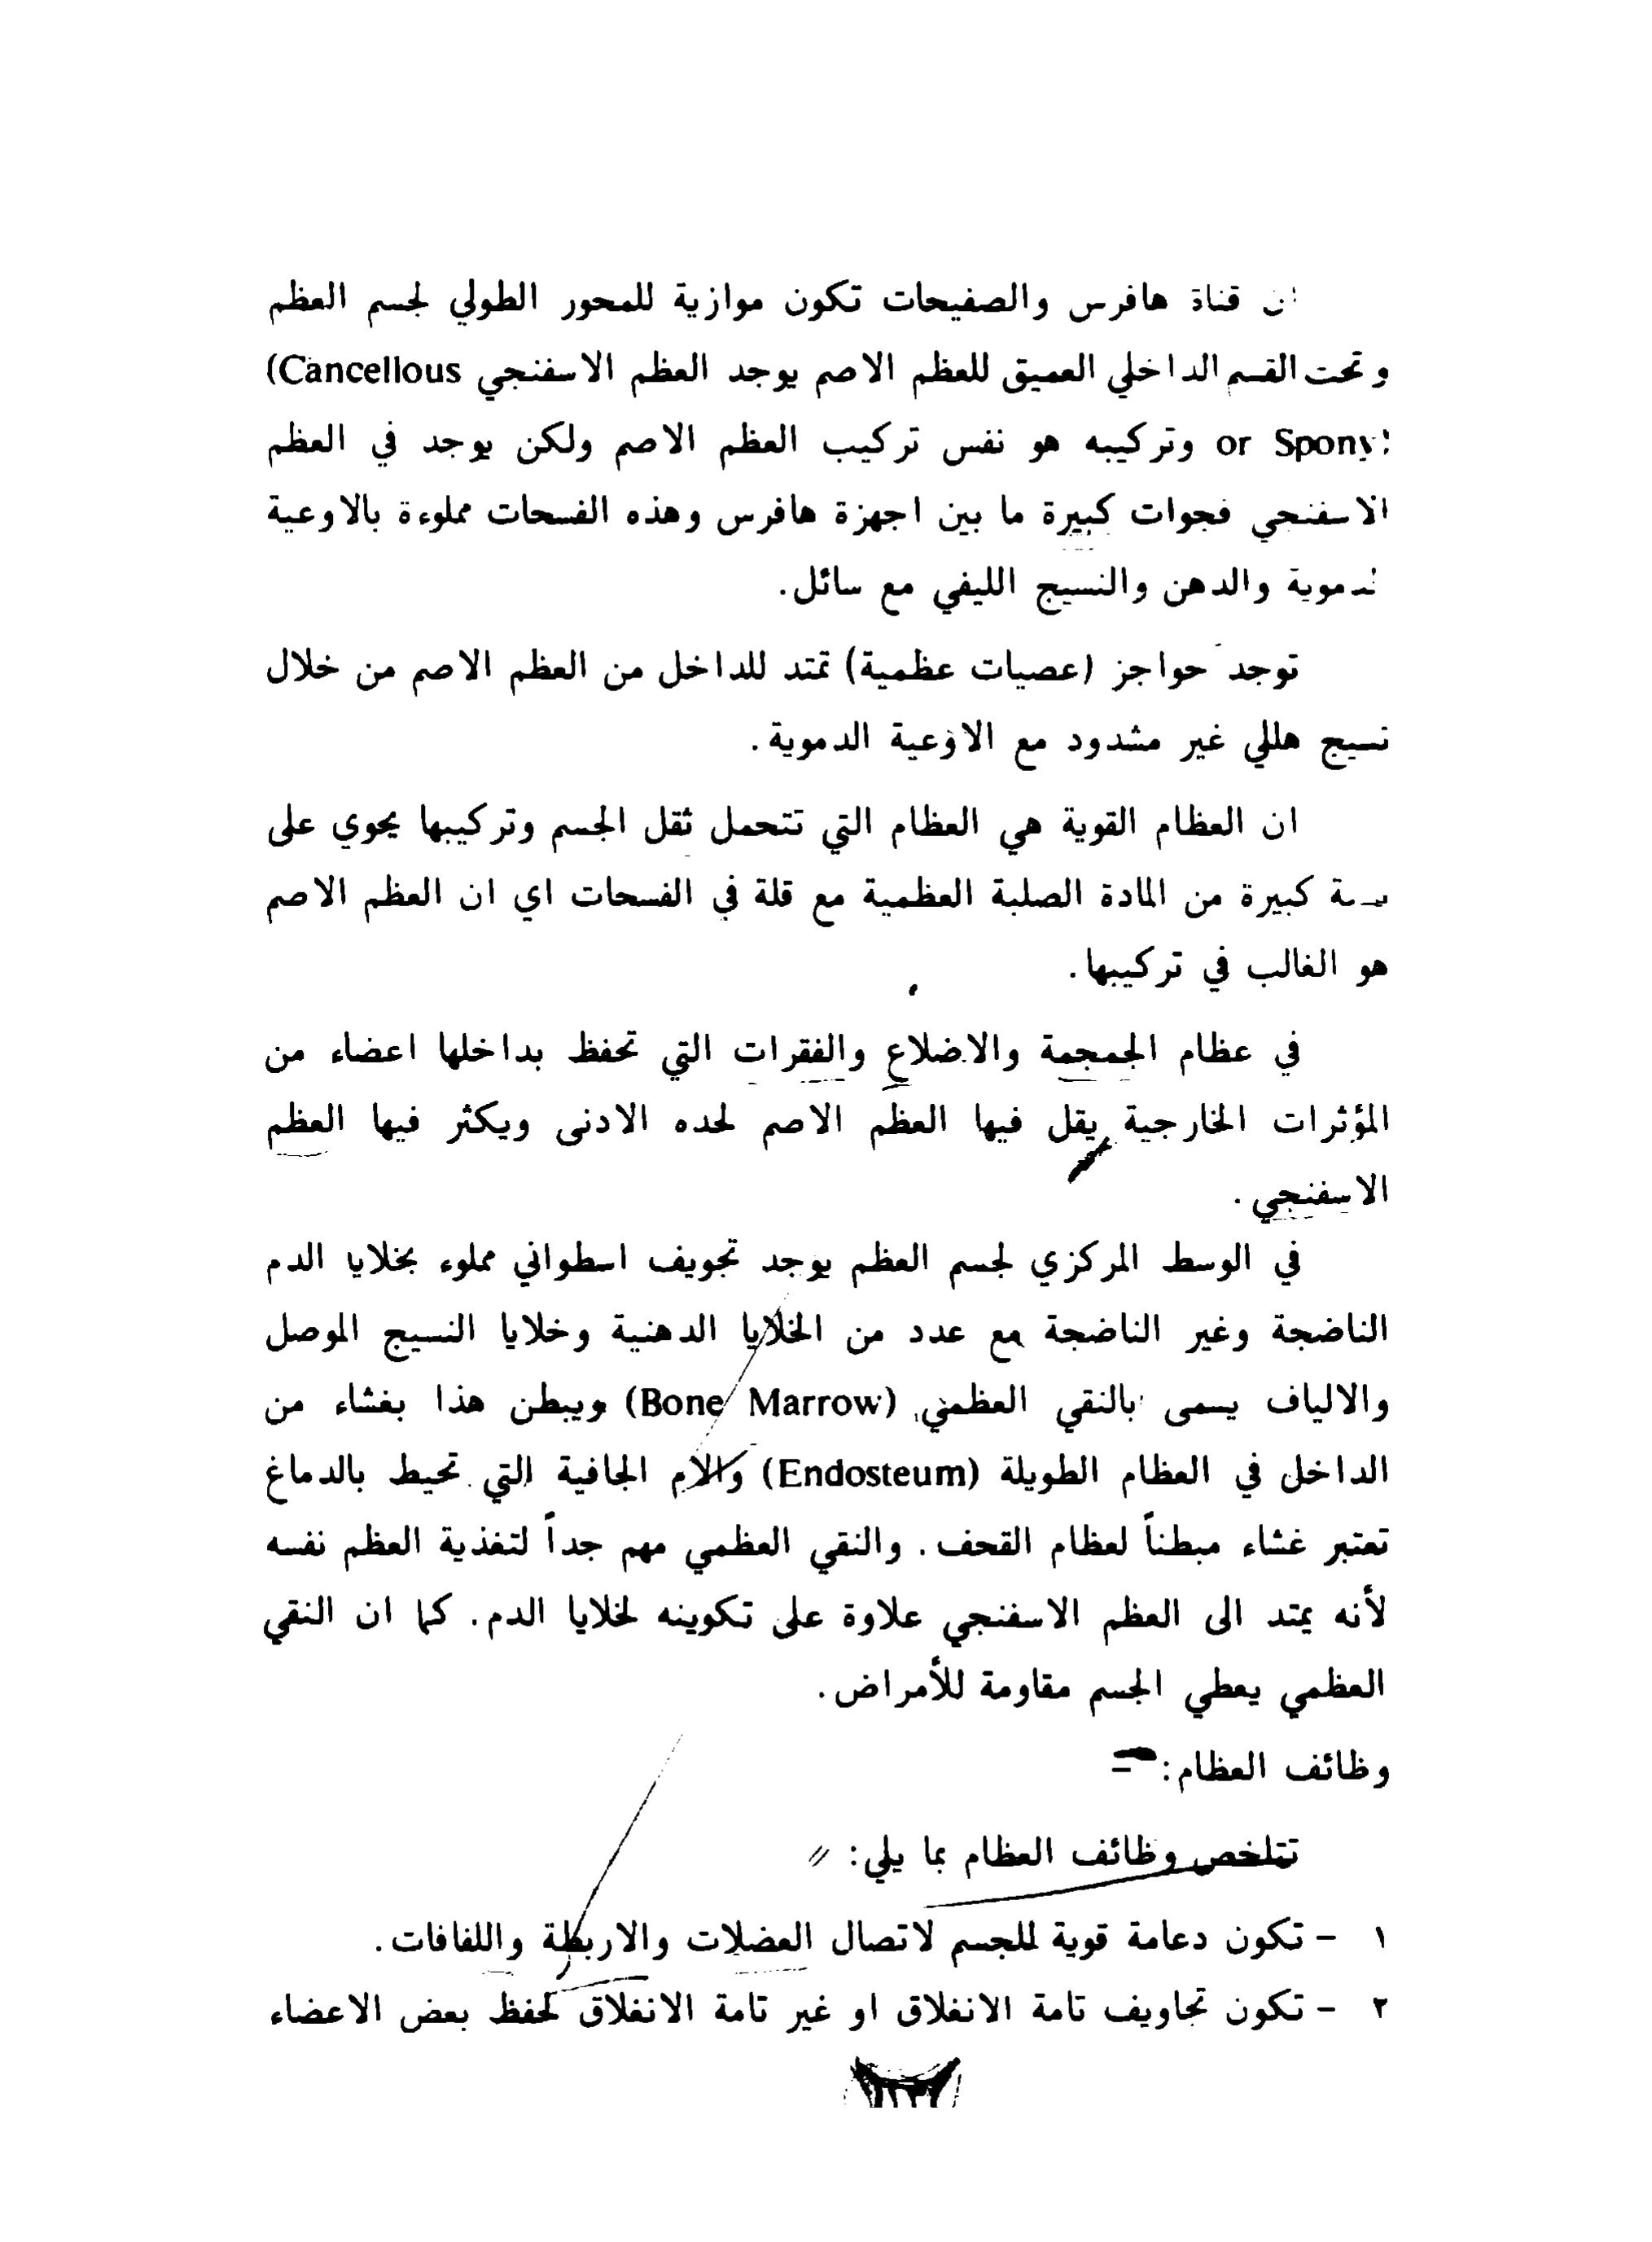 ان قناة هافرس والصفيحات تكون موازية للمحور الطولي لجسم العظم
وتحت القسم الداخلي العميق للعظم الاصم يوجد العظم الاسفنجي (Cancellous
or Spony وتركيبه هو نفس تركيب العظم الاصم ولكن يوجد في العظم
الاسفنجي فجوات كبيرة ما بين اجهزة هافرس وهذه الفسحات مملوءة بالاوعية
الدموية والدهن والنسيج الليفي مع سائل.
توجد حواجز (عصيات عظمية) تمتد للداخل من العظم الاصم من خلال
نسيج هللي غير مشدود مع الاوعية الدموية.
ان العظام القوية هي العظام التي تتحمل ثقل الجسم وتركيبها يحوي على
كبيرة من المادة الصلبة العظمية مع قلة في الفسحات اي ان العظم الاصم
هو الغالب في تركيبها.
في عظام الجمجمة والاضلاع والفقرات التي تحفظ بداخلها اعضاء من
المؤثرات الخارجية يقل فيها العظم الاصم لحده الادنى ويكثر فيها العظم
الاسفنجي.
في الوسط المركزي لجسم العظم يوجد تجويف اسطواني مملوء بخلايا الدم
الناضجة وغير الناضجة مع عدد من الخلايا الدهنية وخلايا النسيج الموصل
والالياف يسمى بالنقي العظمي (Bone Marrow) ويبطن هذا بغشاء من
الداخل في العظام الطويلة (Endosteum) والام الجافية التي تحيط بالدماغ
تعتبر غشاء مبطناً لعظام القحف. والنقي العظمي مهم جداً لتغذية العظم نفسه
لأنه يمتد الى العظم الاسفنجي علاوة على تكوينه لخلايا الدم. كما ان النقي
العظمي يعطي الجسم مقاومة للأمراض.
وظائف العظام: –
تتلخص وظائف العظام بما يلي:
١ – تكون دعامة قوية للجسم لاتصال العضلات والاربطة واللفافات.
٢ – تكون تجاويف تامة الانغلاق او غير تامة الانغلاق لحفظ بعض الاعضاء